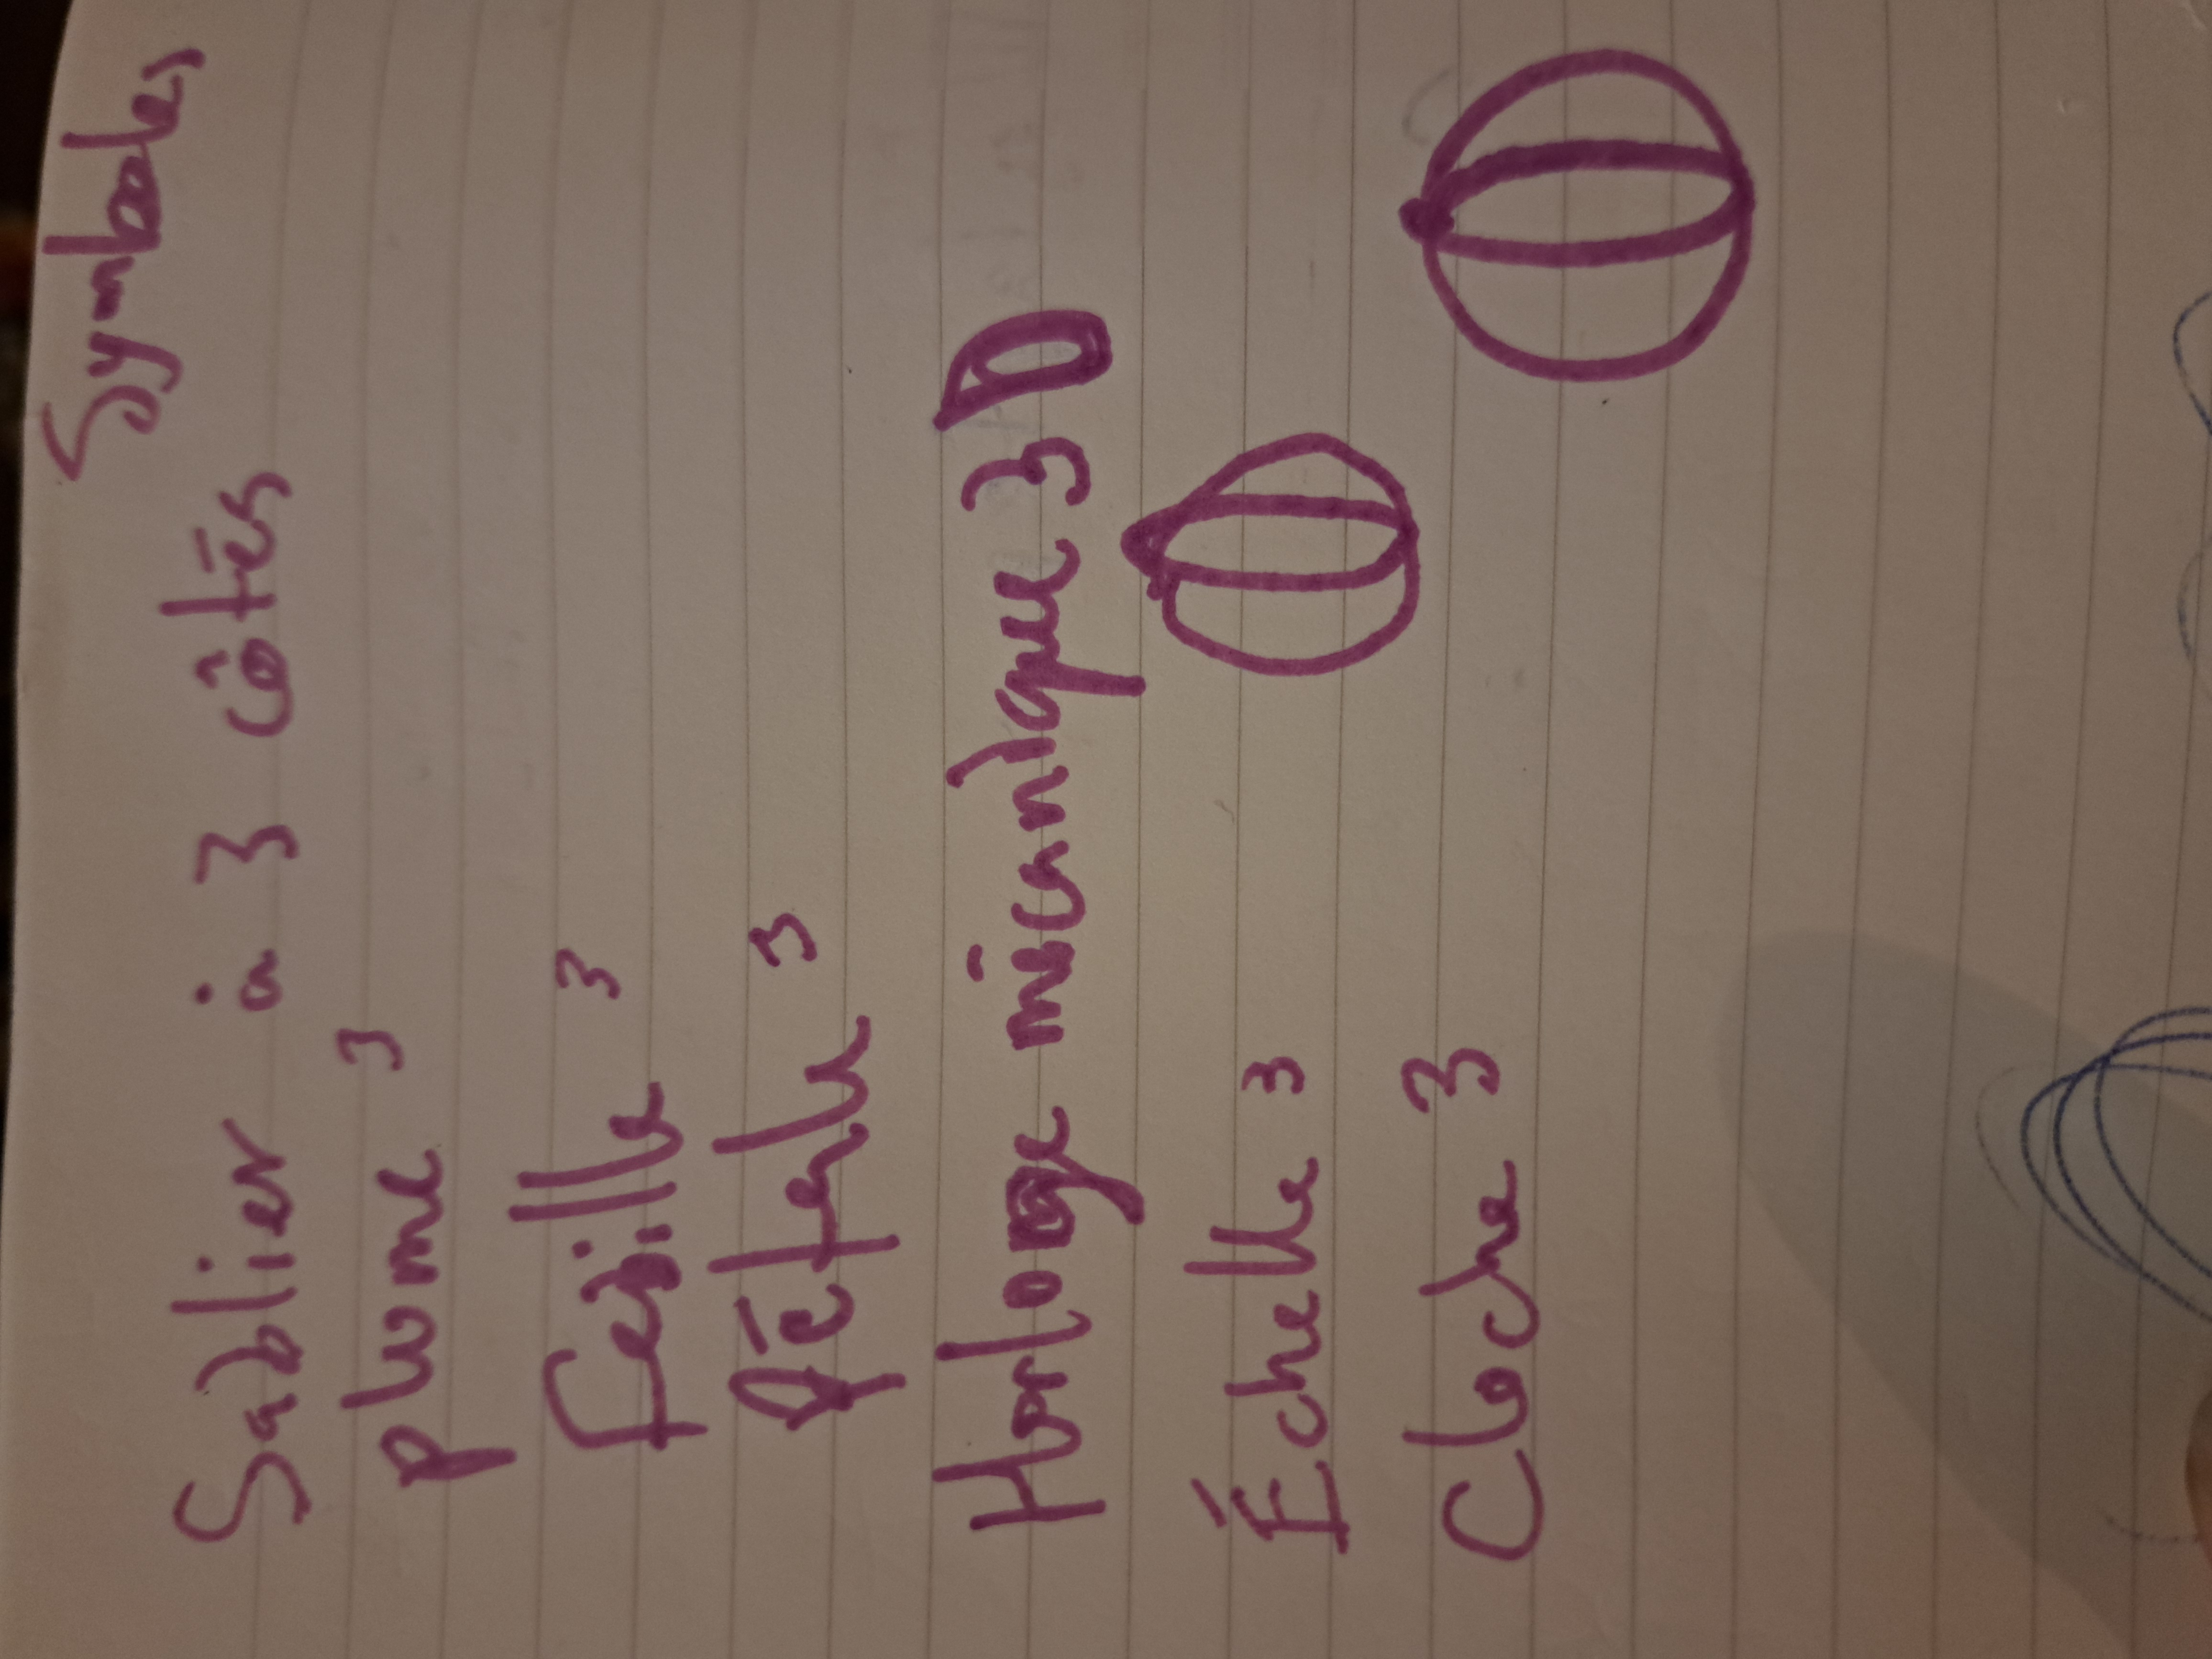 Symboles
Sablier à 3 côtés
plume 3
3
Pétale 3
Horloge mécanique 3
Échelle 3
Cloche 3